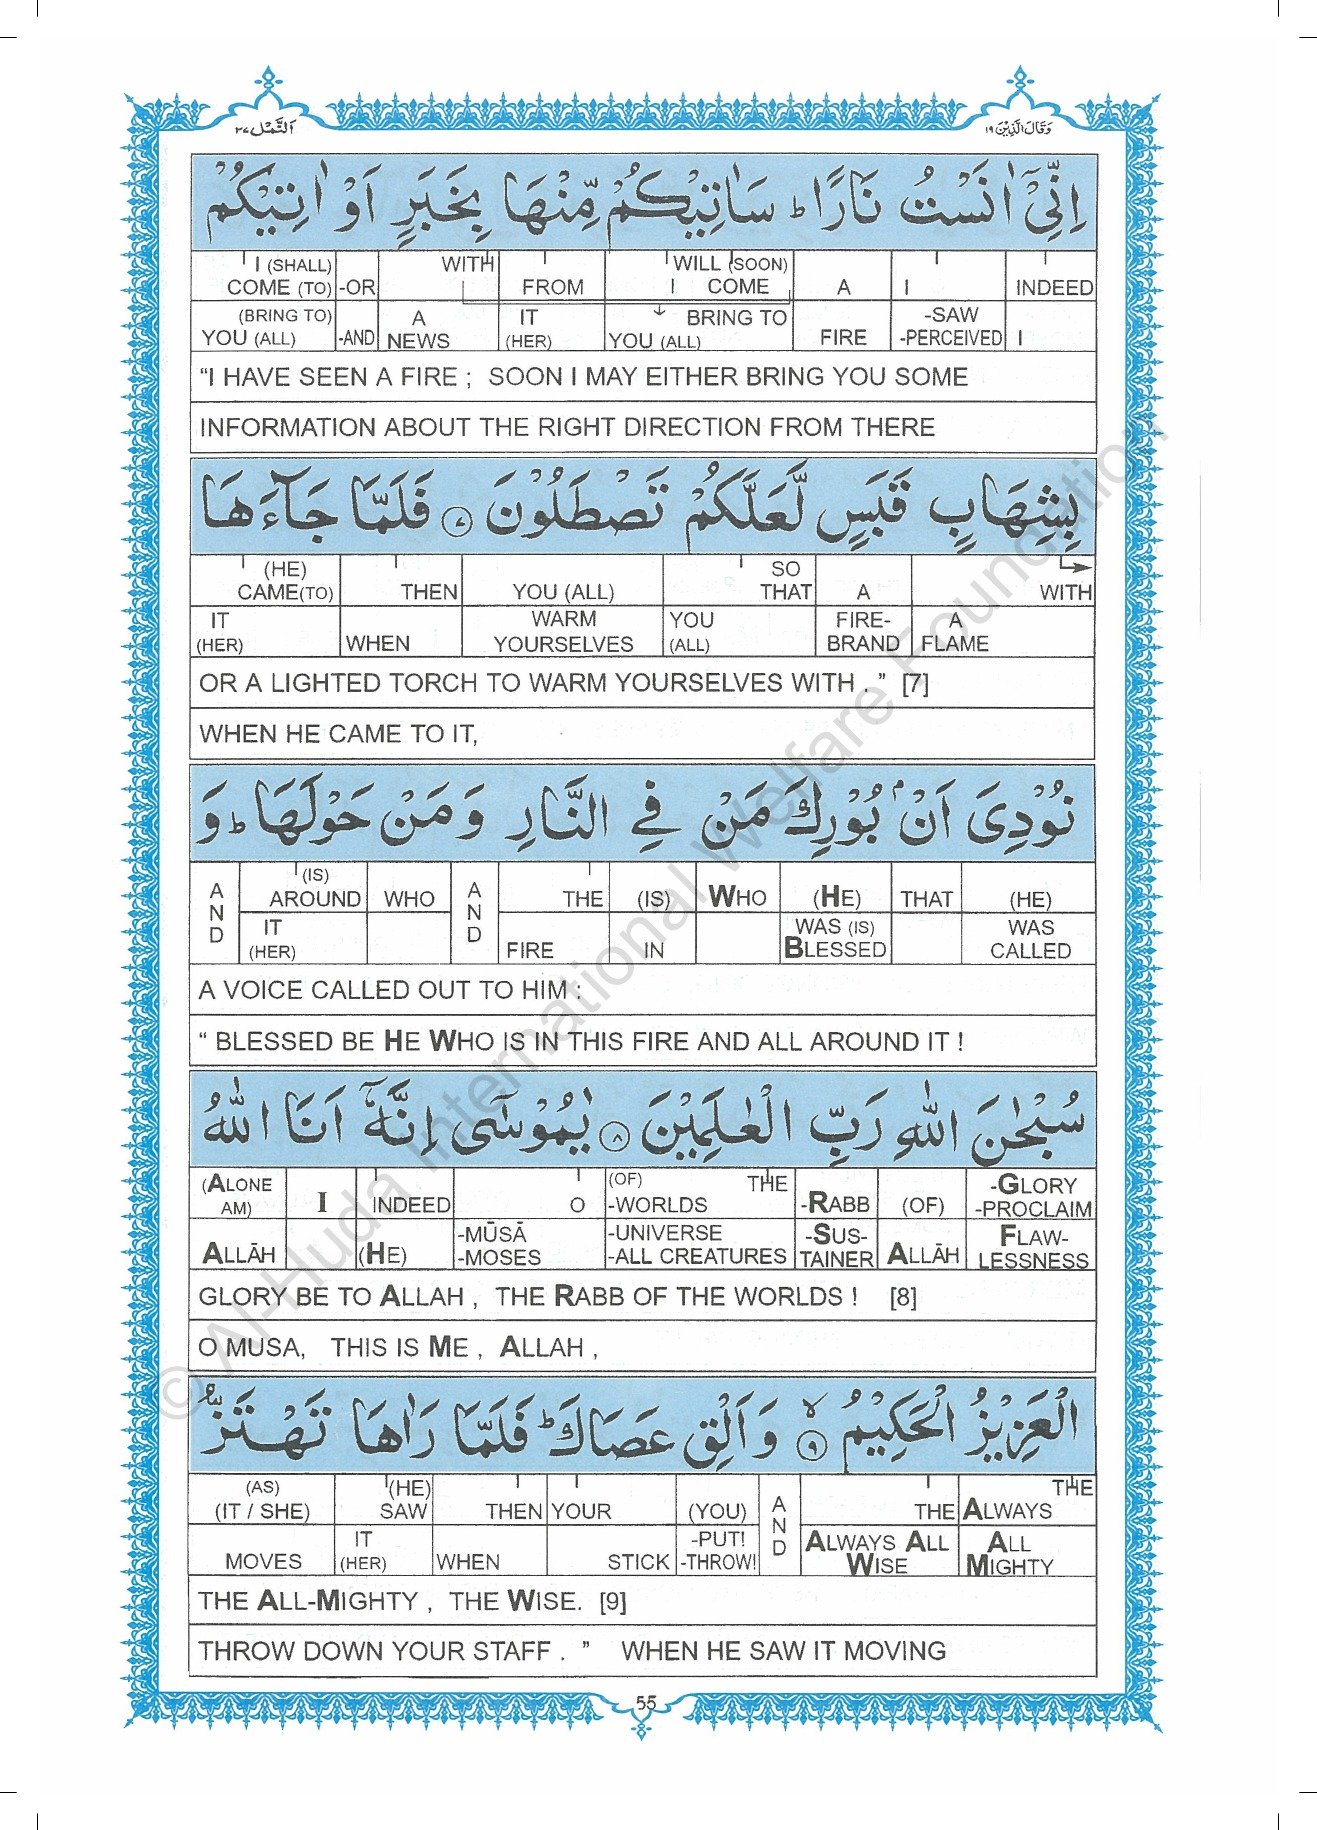 وَقَالَ الَّذِيْنَ ١٩
اَلنَّمْل ٢٧
اِنِّيْۤ اٰنَسْتُ نَارًا ؕ سَاٰتِيْكُمْ مِّنْهَا بِخَبَرٍ اَوْ اٰتِيْكُمْ
I (SHALL) WITH WILL (SOON)
COME (TO) -OR FROM I COME A I INDEED
(BRING TO) A IT BRING TO -SAW
YOU (ALL) -AND NEWS (HER) YOU (ALL) FIRE -PERCEIVED I
“I HAVE SEEN A FIRE ; SOON I MAY EITHER BRING YOU SOME
INFORMATION ABOUT THE RIGHT DIRECTION FROM THERE
بِشِهَابٍ قَبَسٍ لَّعَلَّكُمْ تَصْطَلُوْنَ ﴿٧﴾ فَلَمَّا جَآءَهَا
(HE) SO
CAME(TO) THEN YOU (ALL) THAT A WITH
IT WARM YOU FIRE- A
(HER) WHEN YOURSELVES (ALL) BRAND FLAME
OR A LIGHTED TORCH TO WARM YOURSELVES WITH . ” [7]
WHEN HE CAME TO IT,
نُوْدِيَ اَنْۢ بُوْرِكَ مَنْ فِي النَّارِ وَمَنْ حَوْلَهَا ؕ وَ
(IS)
AND AROUND WHO AND THE (IS) WHO (HE) THAT (HE)
IT WAS (IS) WAS
(HER) FIRE IN BLESSED CALLED
A VOICE CALLED OUT TO HIM :
“ BLESSED BE HE WHO IS IN THIS FIRE AND ALL AROUND IT !
سُبْحٰنَ اللّٰهِ رَبِّ الْعٰلَمِيْنَ ﴿٨﴾ يٰمُوْسٰۤى اِنَّهٗۤ اَنَا اللّٰهُ
(ALONE (OF) THE -GLORY
AM) I INDEED O -WORLDS -RABB (OF) -PROCLAIM
-MŪSĀ -UNIVERSE -SUS- FLAW-
ALLĀH (HE) -MOSES -ALL CREATURES TAINER ALLĀH LESSNESS
GLORY BE TO ALLAH , THE RABB OF THE WORLDS ! [8]
O MUSA, THIS IS ME , ALLAH ,
الْعَزِيْزُ الْحَكِيْمُ ۙ﴿٩﴾ وَاَلْقِ عَصَاكَ ؕ فَلَمَّا رَاٰهَا تَهْتَزُّ
(AS) (HE) THE
(IT / SHE) SAW THEN YOUR (YOU) AND THE ALWAYS
IT -PUT! ALWAYS ALL ALL
MOVES (HER) WHEN STICK -THROW! WISE MIGHTY
THE ALL-MIGHTY , THE WISE. [9]
THROW DOWN YOUR STAFF . ” WHEN HE SAW IT MOVING
55
© Al-Huda International Welfare Foundation